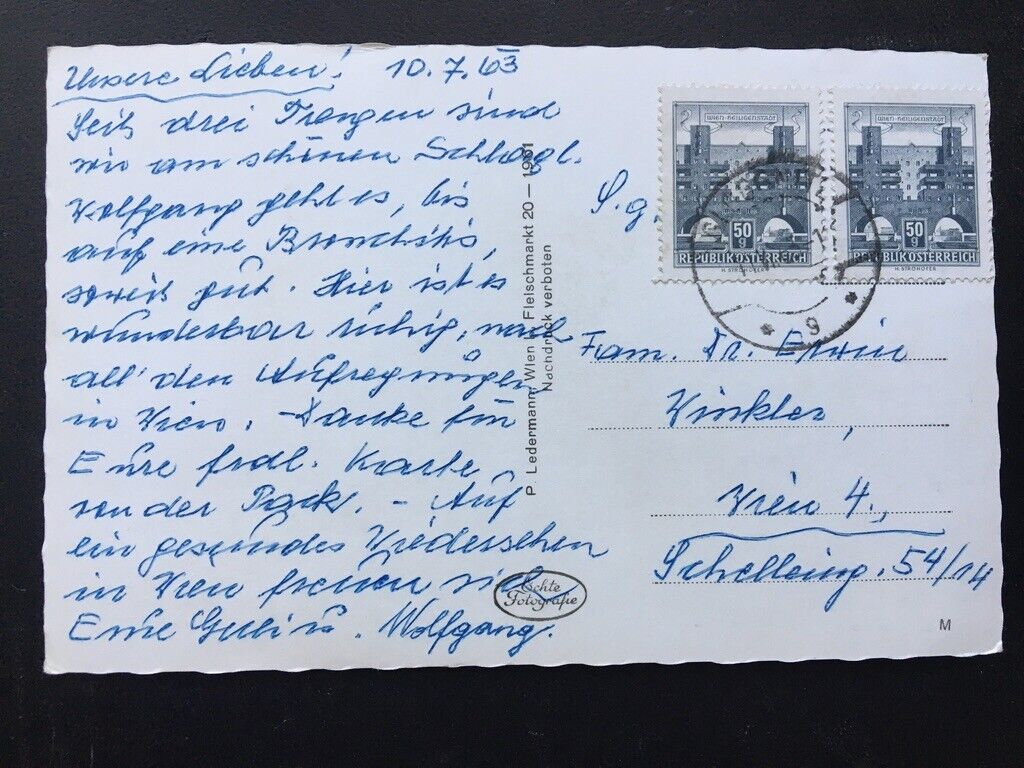 Unsere Lieben! 10.7.63
Seit drei Tragen sind
wir am schönen Schlögl.
Wolfgang geht es, bis
auf eine Bronchitis,
soweit gut. Hier ist es
wunderbar ruhig, nach
all' den Aufregungen
in Wien. - Danke für
Eure frdl. Karte
von der Pack. - Auf
ein gesundes Wiedersehen
in Wien freuen sich
Eure Wolfgang.
P. Ledermann, Wien I, Fleischmarkt 20 – 1991
Nachdruck verboten
Echte
Fotografie
WIEN-HEILIGENSTADT
50 g
REPUBLIK ÖSTERREICH
H. STROHOFER
WIEN-HEILIGENSTADT
50 g
REPUBLIK ÖSTERREICH
H. STROHOFER
* 9 *
S. g.
Fam. Dr. Erwin
Winkler,
Wien 4.,
Schelleing. 54/14
M